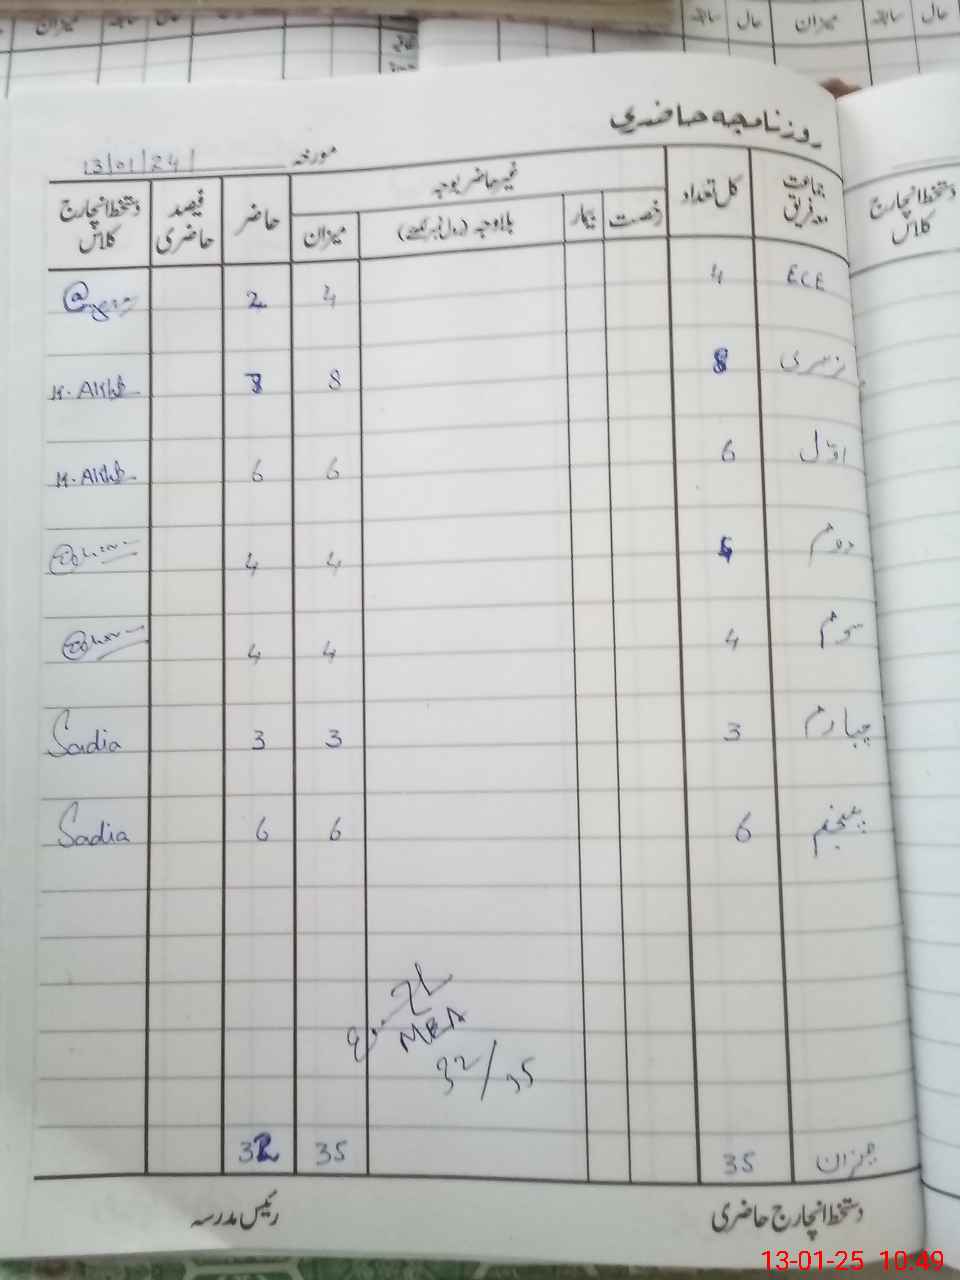 حال سابقہ میزان حال سابقہ
میزان سابقہ حال سابقہ
روزنامچہ حاضری
مورخہ 13/01/24
جماعت معہ فریق کل تعداد غیر حاضر بوجہ حاضر فیصد حاضری دستخط انچارج کلاس
رخصت بیمار بلاوجہ (رول نمبر لکھیے) میزان
دستخط انچارج کلاس
ECE 4 4 2
نرسری 8 8 M. Akhb
اوّل 6 6 6 M. Akhb
دوم 4 4
سوم 4 4 4
چہارم 3 3 3 Sadia
پنجم 6 6 6 Sadia
MEA
32/35
میزان 35 35 32
دستخط انچارج حاضری رئیس مدرسہ
13-01-25 10:49